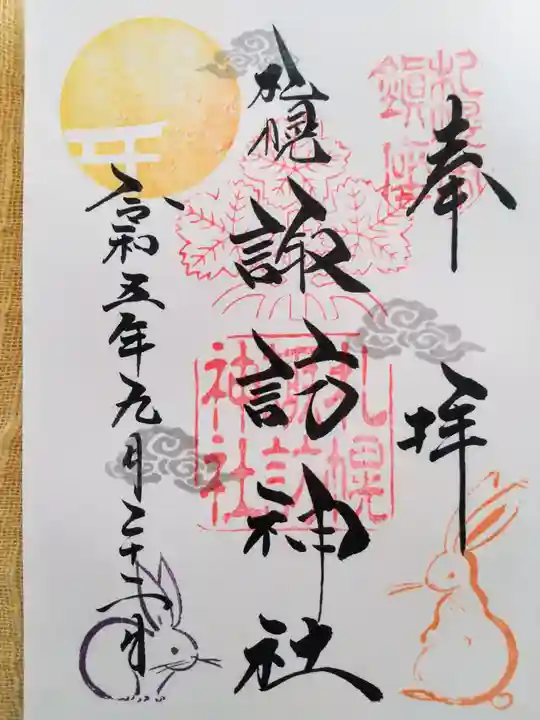 奉拝
札幌
諏訪神社
令和五年九月二十二日
札幌
諏訪
神社